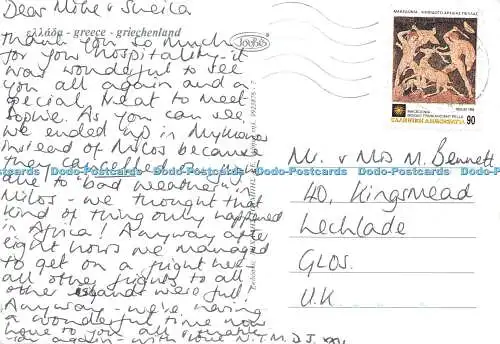 Dear Mike & Sheila
ελλάδα - greece - griechenland
Thank you so much
for your hospitality - it
was wonderful to see
you all again and a
special treat to meet
Sophie. As you can see
we ended up in Mykonos
instead of Milos because
they cancelled our
due to 'bad weather' in
Milos. We thought that
kind of thing only happened
in Africa! Anyway after
eight hours we managed
to get on a flight here
all other flights to all
other islands were full!
Anyway - we're having
a wonderful time now
hope to you all
again - with love N.T.M.D.J. xxx
Joybos
ΜΑΚΕΔΟΝΙΑ - ΨΗΦΙΔΩΤΟ ΑΡΧΑΙΑΣ ΠΕΛΛΑΣ
MACEDONIA -
MOSAIC FROM ANCIENT PELLA
ΕΛΛΗΝΙΚΗ ΔΗΜΟΚΡΑΤΙΑ
90
Mr. & Mrs M. Bennett
40, Kingsmead
Lechlade
GLOS.
U.K
Dodo-Postcards Dodo-Postcards Dodo-Postcards Dodo-Postcards Dodo-Postcards Dodo-Postcards